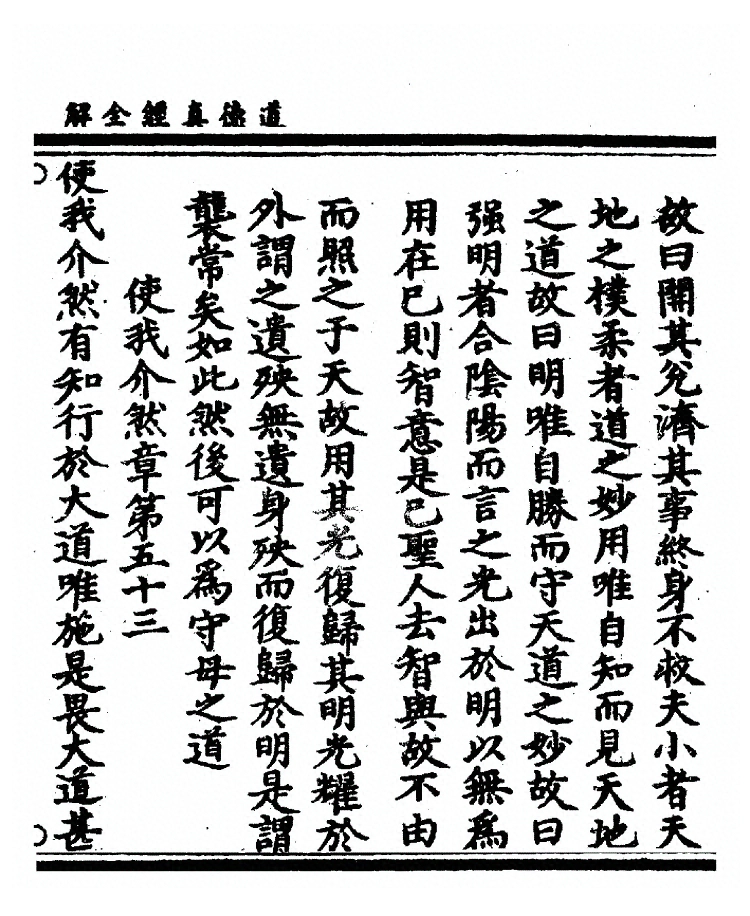 道德真經全解
故曰開其兊濟其事終身不救夫小者天
地之樸柔者道之妙用唯自知而見天地
之道故曰明唯自勝而守天道之妙故曰
强明者合陰陽而言之光出於明以無爲
用在已則智意是已聖人去智與故不由
而照之于天故用其光復歸其明光耀於
外謂之遺殃無遺身殃而復歸於明是謂
襲常矣如此然後可以爲守母之道
使我介然章第五十三
使我介然有知行於大道唯施是畏大道甚